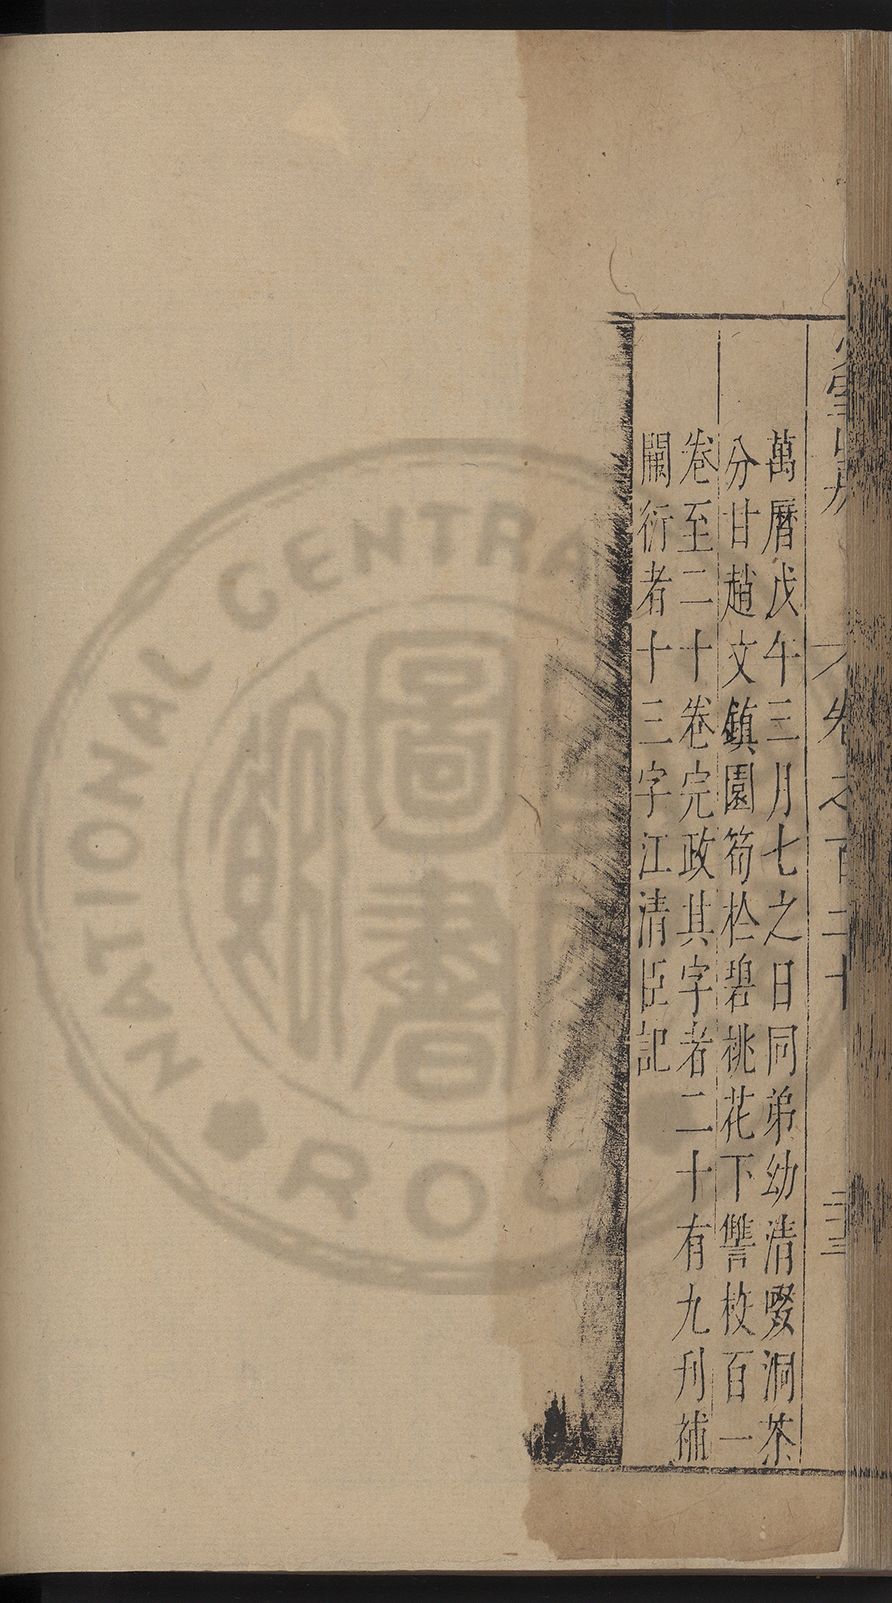 萬曆戊午三月七之日同弟幼清啜洞茶
分甘趙文鎮園筍於碧桃花下讐校百一
卷至二十卷完政其字者二十有九刋補
闕衍者十三字江清臣記
卷之百二十
二十三
圖
書
NATIONAL CENTRA
ROC